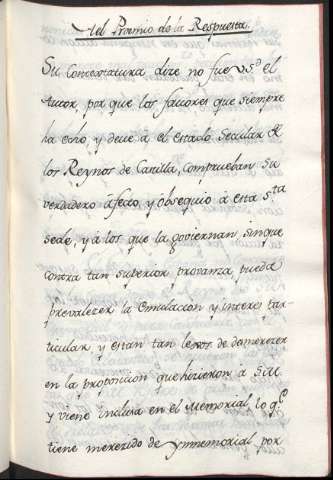 del Proemio de la Respuesta.
Su Contextatura dize no fue vsd. el
tutor, por que los favores que siempre
ha echo, y deve à el estado Secular de
los Reynos de Castilla, comprueban su
verdadero afecto, y obsequio à esta Sta.
Sede, y à los que la goviernan sin que
contra tan superior provanza pueda
prevalezer la Emulacion y interes par-
ticular, y estan tan lexos de demerezer
en la proposicion que hizieron à S.M.
y viene inclusa en el Memorial, lo qe.
tiene merezido de ynmemorial, por